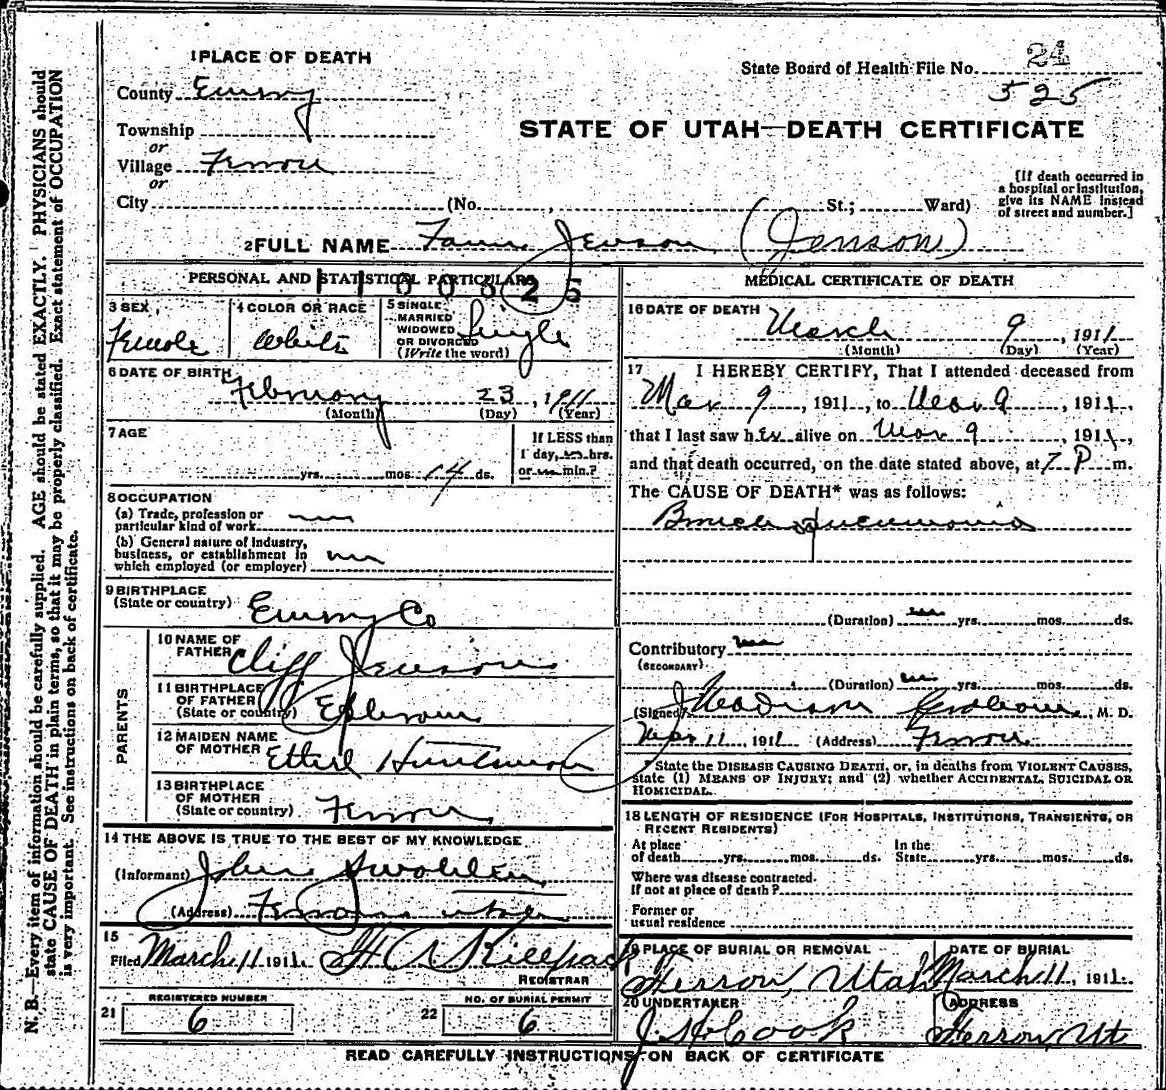 N. B.—Every item of information should be carefully supplied. AGE should be stated EXACTLY. PHYSICIANS should
state CAUSE OF DEATH in plain terms, so that it may be properly classified. Exact statement of OCCUPATION
is very important. See instructions on back of certificate.
1 PLACE OF DEATH
County Emery
Township
or
Village Ferron
or
City (No. , St.; Ward)
State Board of Health File No. 24
525
STATE OF UTAH—DEATH CERTIFICATE
[If death occurred in
a hospital or institution,
give its NAME instead
of street and number.]
2 FULL NAME Jenson (Jenson)
PERSONAL AND STATISTICAL PARTICULARS
3 SEX Female
4 COLOR OR RACE White
5 SINGLE
MARRIED
WIDOWED
OR DIVORCED
(Write the word) Single
6 DATE OF BIRTH February 23, 1911
(Month) (Day) (Year)
7 AGE
yrs. mos. 14 ds.
If LESS than
1 day, hrs.
or min.?
8 OCCUPATION
(a) Trade, profession or
particular kind of work
(b) General nature of industry,
business, or establishment in
which employed (or employer)
9 BIRTHPLACE
(State or country) Emery Co
PARENTS
10 NAME OF
FATHER Cliff Jenson
11 BIRTHPLACE
OF FATHER
(State or country) Ephraim
12 MAIDEN NAME
OF MOTHER Ethel Huntsman
13 BIRTHPLACE
OF MOTHER
(State or country) Ferron
14 THE ABOVE IS TRUE TO THE BEST OF MY KNOWLEDGE
(Informant) John
(Address) Ferron Utah
15
Filed March 11 1911. H A Killpack
REGISTRAR
21 REGISTERED NUMBER
6
22 NO. OF BURIAL PERMIT
6
MEDICAL CERTIFICATE OF DEATH
16 DATE OF DEATH March 9, 1911
(Month) (Day) (Year)
17 I HEREBY CERTIFY, That I attended deceased from
Mar 9, 1911, to Mar 9, 1911,
that I last saw her alive on Mar 9, 1911,
and that death occurred, on the date stated above, at 7 P m.
The CAUSE OF DEATH* was as follows:
Broncho pneumonia
(Duration) yrs. mos. ds.
Contributory
(SECONDARY)
(Duration) yrs. mos. ds.
(Signed) M. D.
Mar 11, 1911 (Address) Ferron
State the DISEASE CAUSING DEATH, or, in deaths from VIOLENT CAUSES,
state (1) MEANS OF INJURY; and (2) whether ACCIDENTAL, SUICIDAL OR
HOMICIDAL.
18 LENGTH OF RESIDENCE (FOR HOSPITALS, INSTITUTIONS, TRANSIENTS, OR
RECENT RESIDENTS)
At place
of death yrs. mos. ds. In the
State yrs. mos. ds.
Where was disease contracted.
If not at place of death?
Former or
usual residence
19 PLACE OF BURIAL OR REMOVAL
Ferron, Utah
DATE OF BURIAL
March 11, 1911.
20 UNDERTAKER
J. H. Cook
ADDRESS
Ferron, Ut
READ CAREFULLY INSTRUCTIONS ON BACK OF CERTIFICATE